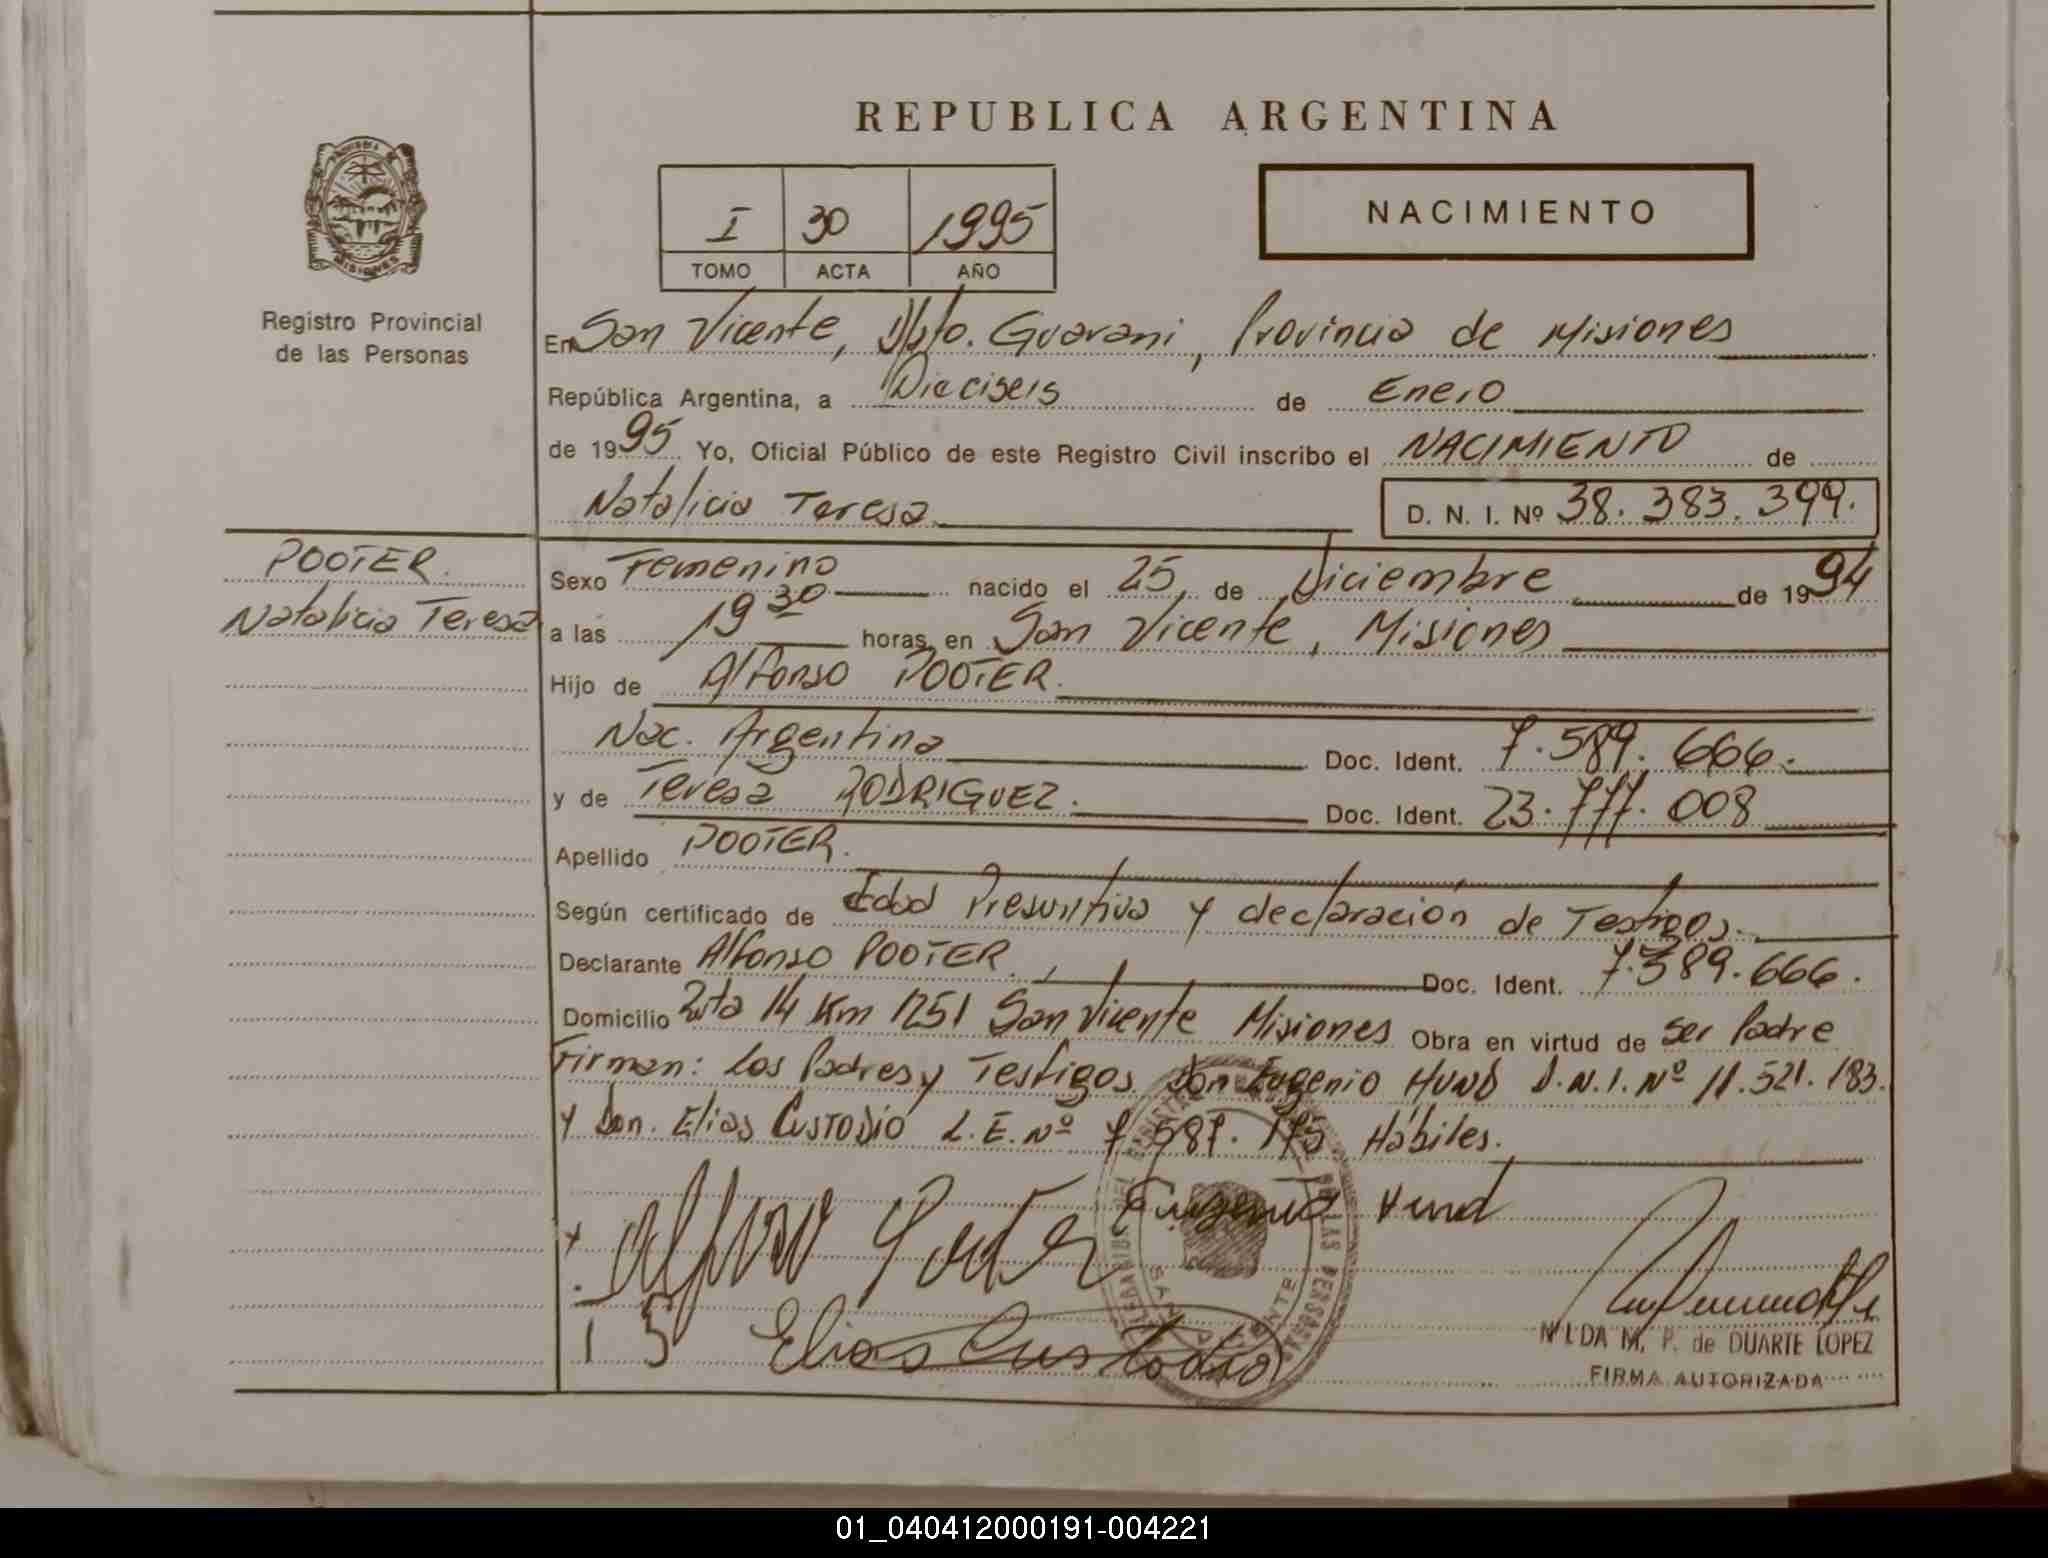 REPUBLICA ARGENTINA
PROVINCIA DE
MISIONES
Registro Provincial
de las Personas
I 30 1995
TOMO ACTA AÑO
NACIMIENTO
En San Vicente, Dpto. Guarani, Provincia de Misiones
República Argentina, a Dieciseis de Enero
de 1995 Yo, Oficial Público de este Registro Civil inscribo el NACIMIENTO de
Natalicia Teresa D. N. I. Nº 38. 383. 399.
POOTER.
Natalicia Teresa
Sexo Femenino nacido el 25 de Diciembre de 1994
a las 19 30 horas, en San Vicente, Misiones
Hijo de Alfonso POOTER.
Nac. Argentina Doc. Ident. 7. 589. 666.
y de Teresa RODRIGUEZ. Doc. Ident. 23. 777. 008
Apellido POOTER.
Según certificado de Edad Presuntiva y declaración de Testigos.
Declarante Alfonso POOTER. Doc. Ident. 7.589.666.
Domicilio Ruta 14 Km 1251 San Vicente Misiones Obra en virtud de Ser Padre
Firman: los Padres y Testigos Don Eugenio HUND D.N.I. Nº 11.521.183.
y Don. Elias CUSTODIO L.E. Nº 7 587. 175 Hábiles.
Alfonso Poter Eugenio Hund
15 Elias Custodio
SAN VICENTE
DE LAS PERSONAS
NILDA M. P. de DUARTE LOPEZ
FIRMA AUTORIZADA
01_040412000191-004221